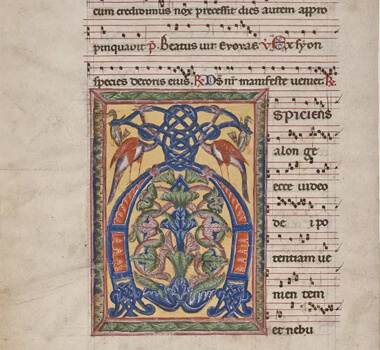 cum credimus nox precessit dies autem appro
pinquavit p. Beatus uir Evovae. v Ex syon
species decoris eius. R Ds nr manifeste veniet. R
SPICIENS
a lon ge
ecce video
de i po
tentiam ue
nien tem
et nebu